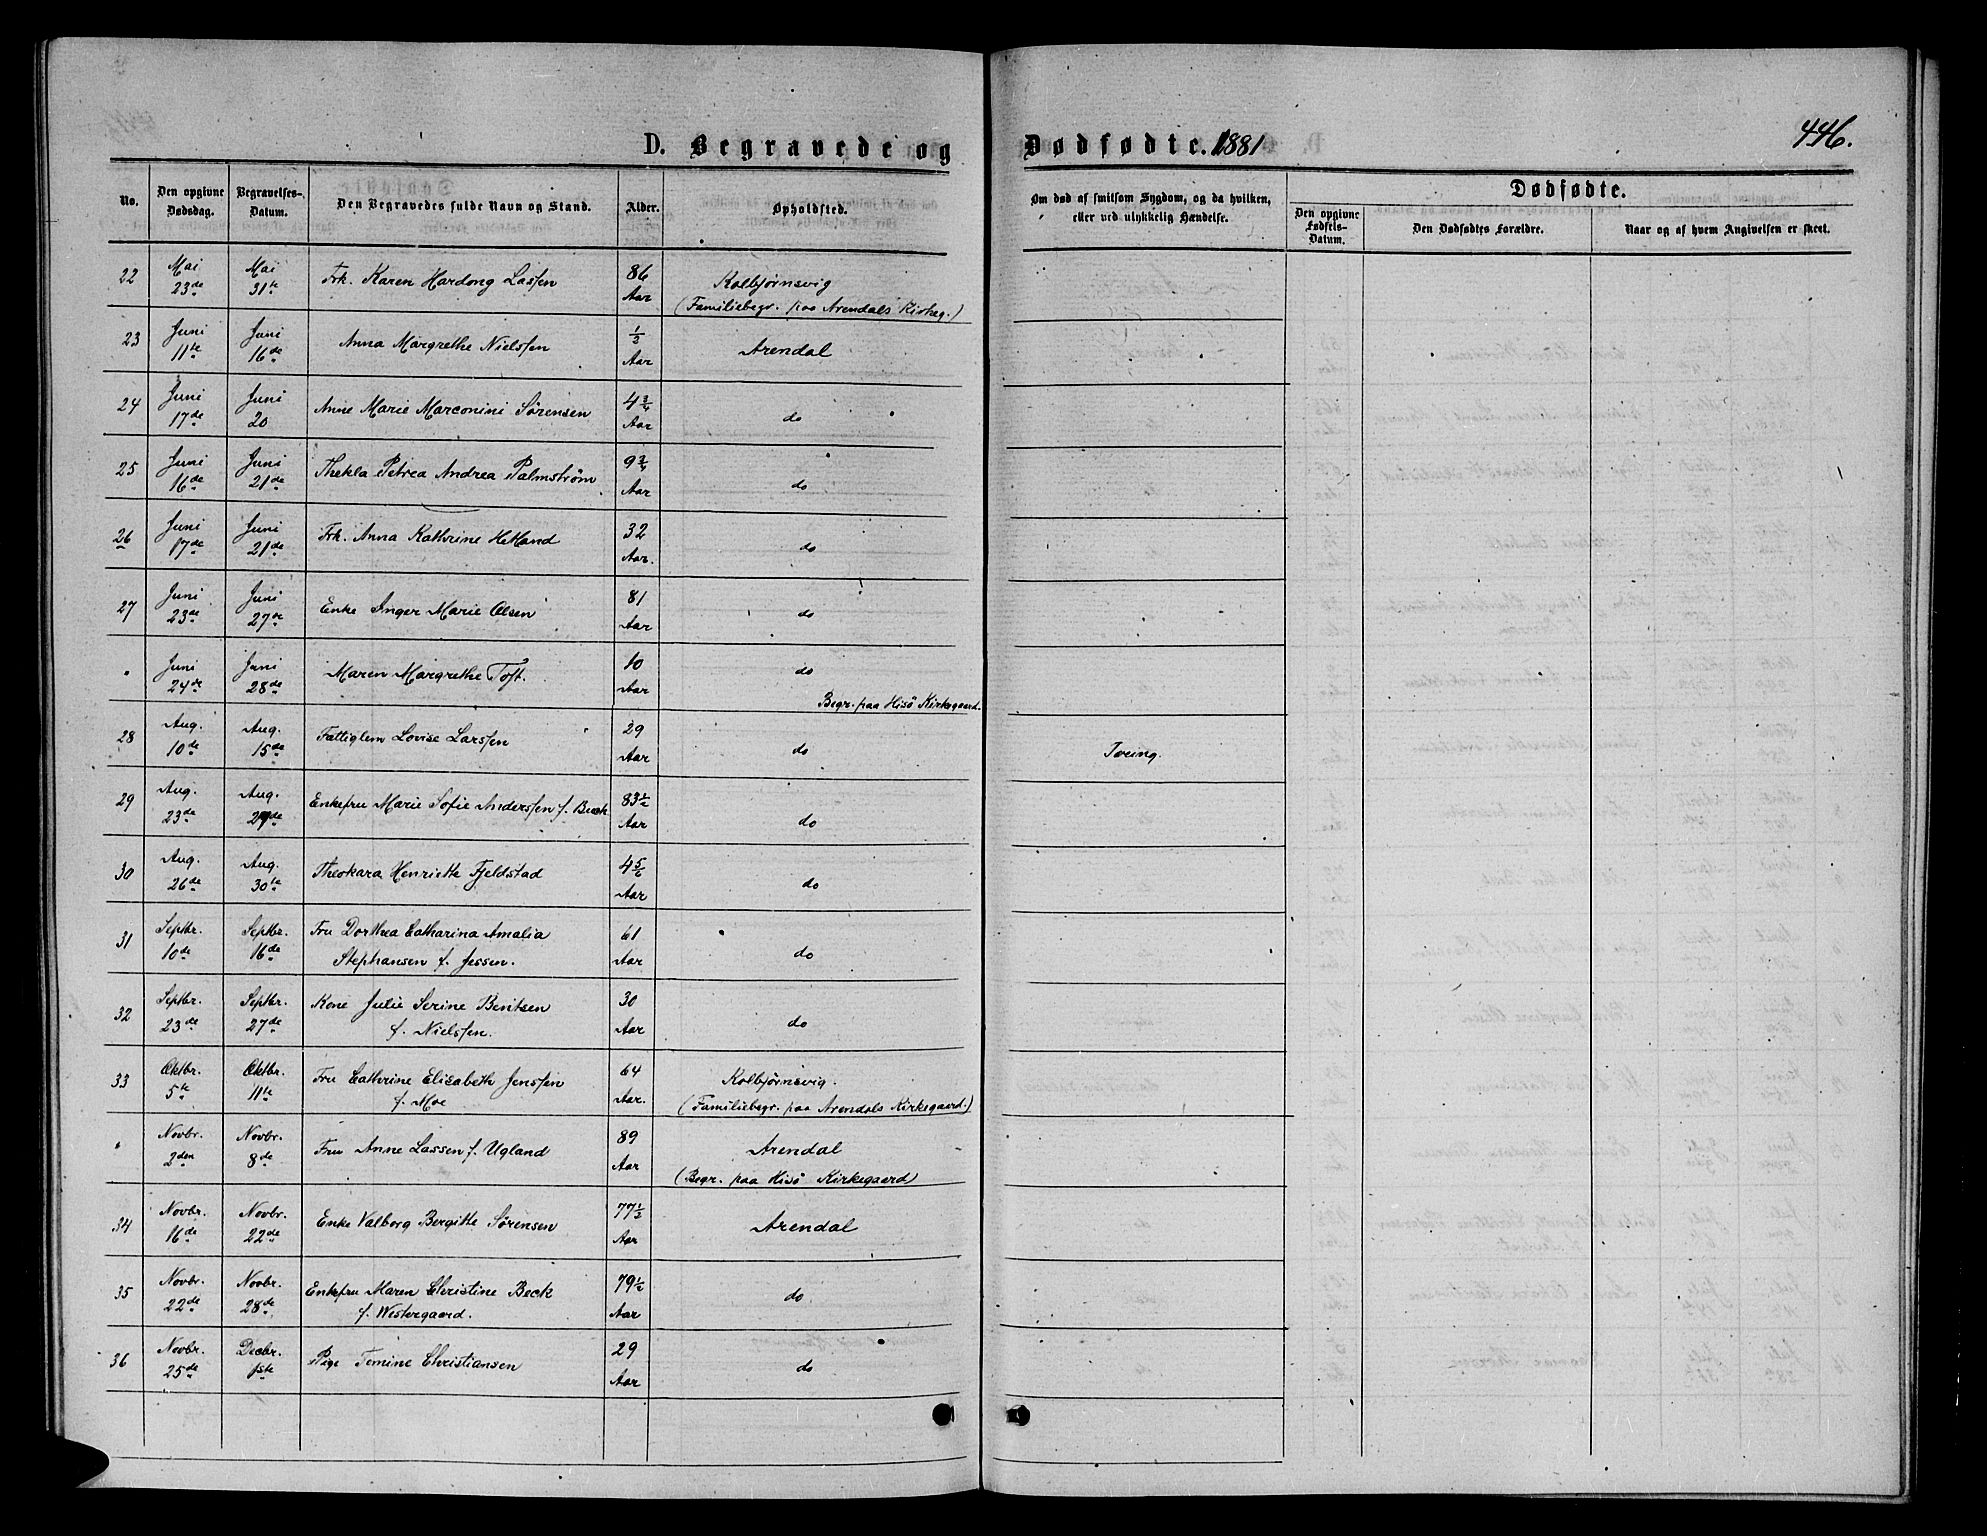 D. Begravede og Dødfødte. 1881
446.
No.
Den opgivne Dødsdag.
Begravelses-Datum.
Den Begravedes fulde Navn og Stand.
Alder.
Opholdsted.
Om død af smitsom Sygdom, og da hvilken, eller ved ulykkelig Hændelse.
Dødfødte.
Den opgivne Fødsels-Datum.
Den Dødfødtes Forældre.
Naar og af hvem Angivelsen er skeet.
22 Mai 23de Mai 31te Frk. Karen Hardong Lassen 86 Aar Kolbjørnsvig
(Familiebegr. paa Arendals Kirkeg.)
23 Juni 11te Juni 16de Anna Margrethe Nielssen 1/2 Aar Arendal
24 Juni 17de Juni 20 Anne Marie Marconini Sørensen 4 3/4 Aar do
25 Juni 16de Juni 21de Thekla Petrea Andrea Palmstrøm 9 3/4 Aar do
26 Juni 17de Juni 21de Frk. Anna Kathrine Hetland 32 Aar. do
27 Juni 23de Juni 27de Enke Inger Marie Olsen 81 Aar do
" Juni 24de Juni 28de Maren Margrethe Toft. 10 Aar do
Begr. paa Hisö Kirkegaard.
28 Aug. 10de Aug. 15de Fattiglem Lovise Larssen 29 Aar do Tæring.
29 Aug. 23de Aug. 29de Enkefru Marie Sofie Anderssen f. Beck 83 1/2 Aar do
30 Aug. 26de Aug. 30te Theokara Henriette Fjeldstad 4 5/6 Aar do
31 Septbr. 10de Septbr. 16de Fru Dorthea Catharina Amalia
Stephansen f. Jessen. 61 Aar do
32 Septbr. 23de Septbr. 27de Kone Julie Serine Bentsen
f. Nielssen. 30 Aar do
33 Oktbr. 5te Oktbr. 11te Fru Cathrine Elisabeth Jenssen
f. Moe 64 Aar. Kolbjørnsvig.
(Familiebegr. paa Arendals Kirkegaard.)
" Novbr. 2den Novbr. 8de Fru Anne Lassen f. Ugland 89 Aar Arendal
(Begr. paa Hisö Kirkegaard)
34 Novbr. 16de Novbr. 22de Enke Valborg Bergitte Sørensen 77 1/2 Aar Arendal
35 Novbr. 22de Novbr. 28de Enkefru Maren Christine Beck
f. Westergaard. 79 1/2 Aar do
36 Novbr. 25de Decbr. 1ste Pige Tomine Christiansen 29 Aar do